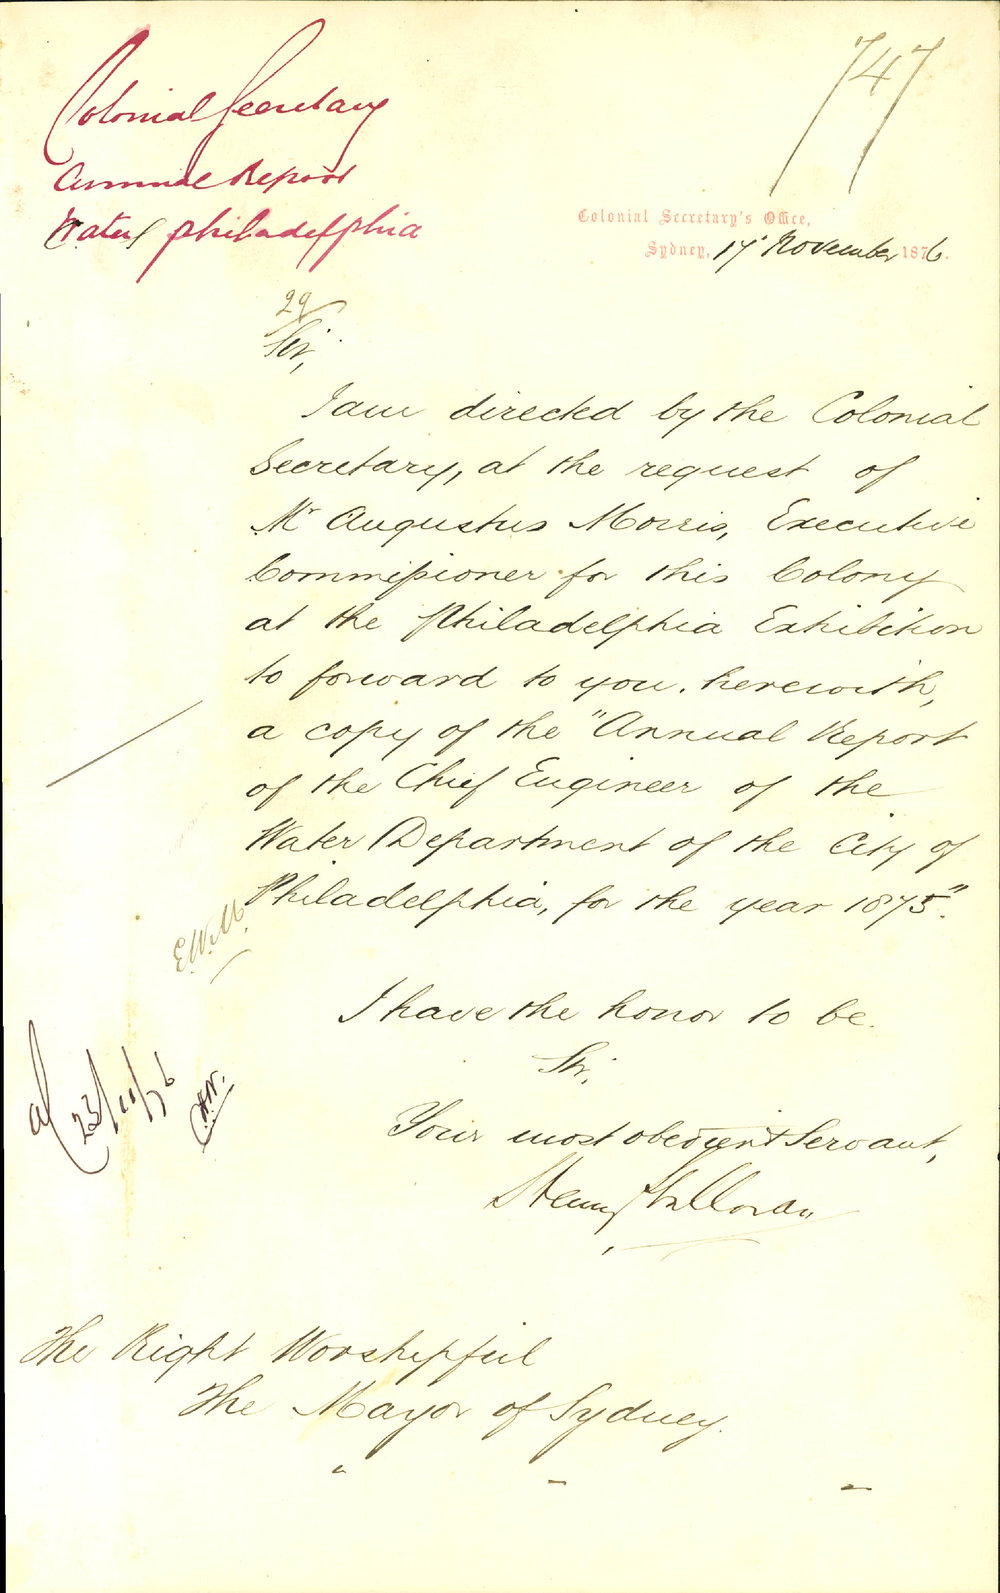 747
Colonial Secretary
Annual Report
Water Philadelphia
Colonial Secretary's Office,
Sydney, 17 November 1876.
29
Sir,
I am directed by the Colonial
Secretary, at the request of
Mr Augustus Morris, Executive
Commissioner for this Colony
at the Philadelphia Exhibition
to forward to you, herewith,
a copy of the "Annual Report
of the Chief Engineer of the
Water Department of the City of
Philadelphia, for the year 1875".
E.W.M.
I have the honor to be.
Sir,
23/11/76
Your most obedient Servant,
Henry Halloran
The Right Worshipful
The Mayor of Sydney.